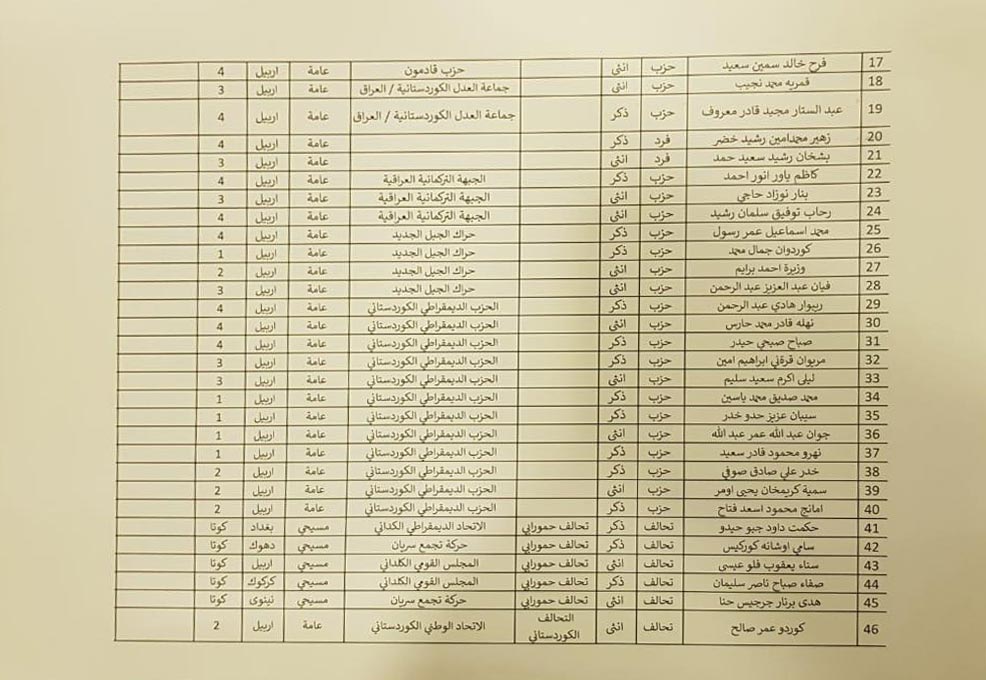 17 فرح خالد سمين سعيد حزب انثى حزب قادمون عامة اربيل 4
18 قمريه محمد نجيب حزب انثى جماعة العدل الكوردستانية / العراق عامة اربيل 3
19 عبد الستار مجيد قادر معروف حزب ذكر جماعة العدل الكوردستانية / العراق عامة اربيل 4
20 زهير محمدامين رشيد خضر فرد ذكر عامة اربيل 4
21 بشخان رشيد سعيد حمد فرد انثى عامة اربيل 3
22 كاظم ياور انور احمد حزب ذكر الجبهة التركمانية العراقية عامة اربيل 4
23 بنار نوزاد حاجي حزب انثى الجبهة التركمانية العراقية عامة اربيل 3
24 رحاب توفيق سلمان رشيد حزب انثى الجبهة التركمانية العراقية عامة اربيل 4
25 محمد اسماعيل عمر رسول حزب ذكر حراك الجيل الجديد عامة اربيل 4
26 كوردوان جمال محمد حزب ذكر حراك الجيل الجديد عامة اربيل 1
27 وزيرة احمد برايم حزب انثى حراك الجيل الجديد عامة اربيل 2
28 فيان عبد العزيز عبد الرحمن حزب انثى حراك الجيل الجديد عامة اربيل 3
29 ريبوار هادي عبد الرحمن حزب ذكر الحزب الديمقراطي الكوردستاني عامة اربيل 4
30 نهله قادر محمد حارس حزب انثى الحزب الديمقراطي الكوردستاني عامة اربيل 4
31 صباح صبحي حيدر حزب ذكر الحزب الديمقراطي الكوردستاني عامة اربيل 4
32 مريوان قرةني ابراهيم امين حزب ذكر الحزب الديمقراطي الكوردستاني عامة اربيل 3
33 ليلى اكرم سعيد سليم حزب انثى الحزب الديمقراطي الكوردستاني عامة اربيل 3
34 محمد صديق محمد ياسين حزب ذكر الحزب الديمقراطي الكوردستاني عامة اربيل 1
35 سيبان عزيز حدو خدر حزب ذكر الحزب الديمقراطي الكوردستاني عامة اربيل 1
36 جوان عبد الله عمر عبد الله حزب انثى الحزب الديمقراطي الكوردستاني عامة اربيل 1
37 نهرو محمود قادر سعيد حزب ذكر الحزب الديمقراطي الكوردستاني عامة اربيل 1
38 خدر علي صادق صوفي حزب ذكر الحزب الديمقراطي الكوردستاني عامة اربيل 2
39 سمية كريمخان يحيى اومر حزب انثى الحزب الديمقراطي الكوردستاني عامة اربيل 2
40 امانج محمود اسعد فتاح حزب ذكر الحزب الديمقراطي الكوردستاني عامة اربيل 2
41 حكمت داود جبو حيدو تحالف ذكر تحالف حمورابي الاتحاد الديمقراطي الكداني مسيحي بغداد كوتا
42 سامي اوشانه كوركيس تحالف ذكر تحالف حمورابي حركة تجمع سريان مسيحي دهوك كوتا
43 سناء يعقوب فلو عيسى تحالف انثى تحالف حمورابي المجلس القومي الكلداني مسيحي اربيل كوتا
44 صفاء صباح ناصر سليمان تحالف ذكر تحالف حمورابي المجلس القومي الكلداني مسيحي كركوك كوتا
45 هدى برنار جرجيس حنا تحالف انثى تحالف حمورابي حركة تجمع سريان مسيحي نينوى كوتا
46 كوردو عمر صالح تحالف انثى التحالف الكوردستاني الاتحاد الوطني الكوردستاني عامة اربيل 2